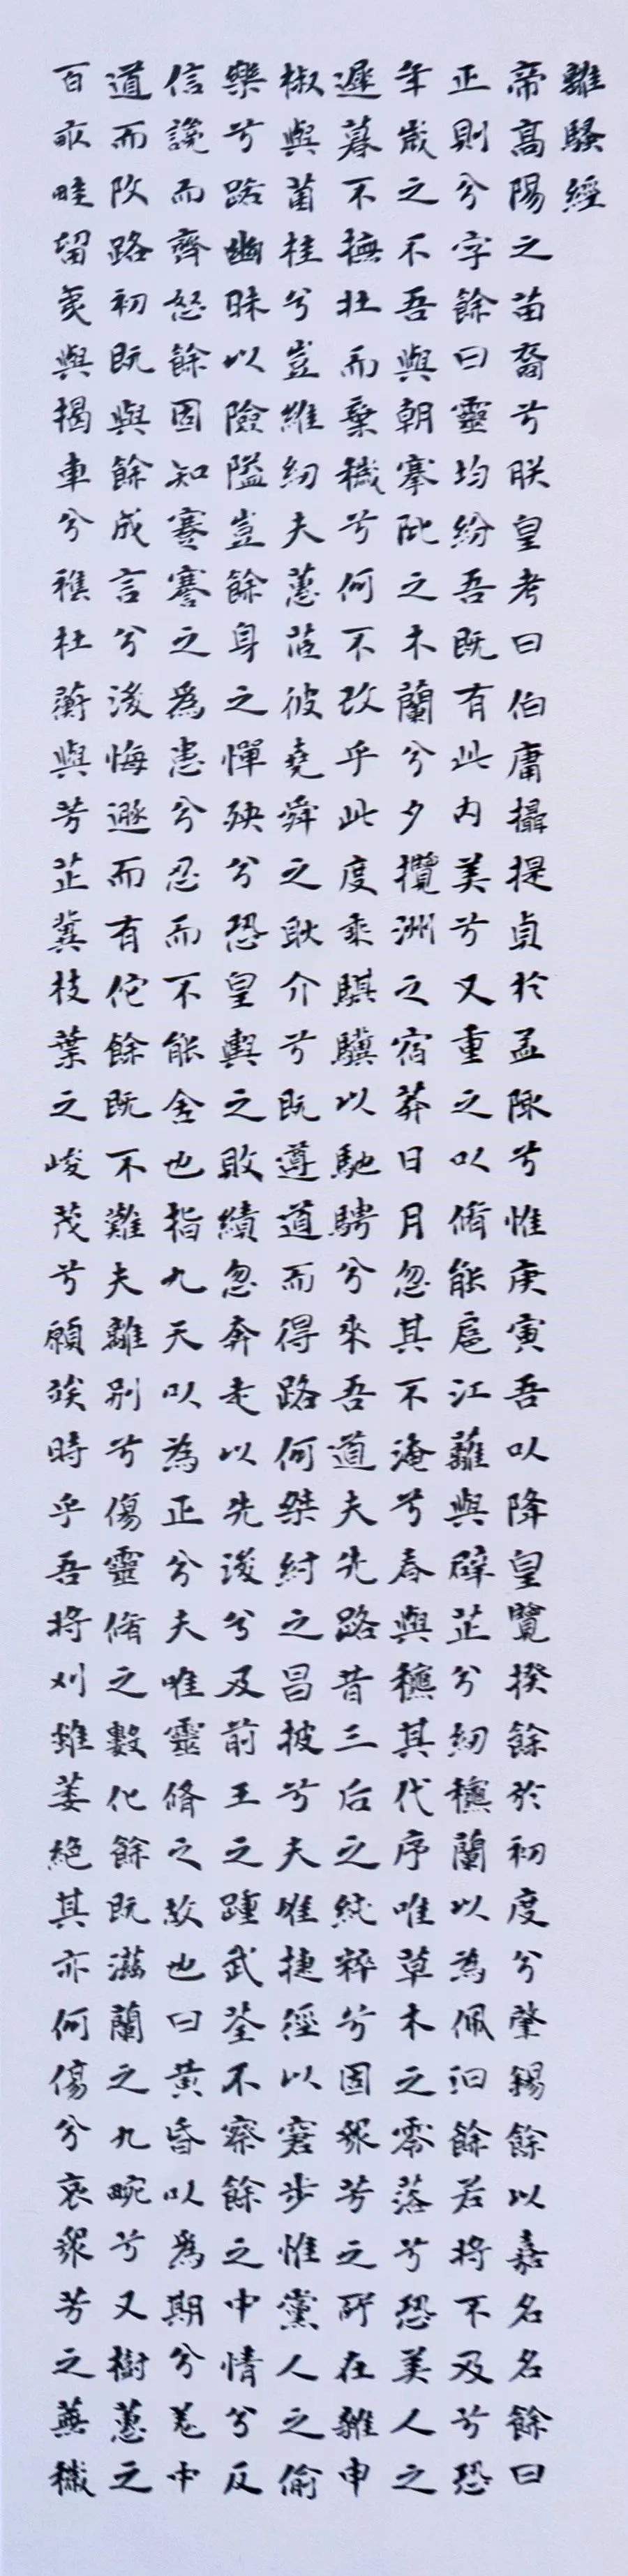 離騷經
帝高陽之苗裔兮朕皇考曰伯庸攝提貞於孟陬兮惟庚寅吾以降皇覽揆餘於初度兮肇錫餘以嘉名名餘曰
正則兮字餘曰靈均紛吾既有此內美兮又重之以脩能扈江蘺與辟芷兮紉穐蘭以為佩汩餘若將不及兮恐
年歲之不吾與朝搴阰之木蘭兮夕攬洲之宿莽日月忽其不淹兮春與穐其代序唯草木之零落兮恐美人之
遲暮不撫壯而棄穢兮何不改乎此度乘騏驥以馳騁兮來吾道夫先路昔三后之純粹兮固眾芳之所在雜申
椒與菌桂兮豈維紉夫蕙茝彼堯舜之耿介兮既遵道而得路何桀紂之昌披兮夫唯捷經以窘步惟黨人之偷
樂兮路幽昧以險隘豈餘身之憚殃兮恐皇輿之敗績忽奔走以先後兮及前王之踵武荃不察餘之中情兮反
信讒而齊怒餘固知謇謇之為患兮忍而不能舍也指九天以為正兮夫唯靈脩之故也曰黃昏以為期兮羌中
道而改路初既與餘成言兮後悔遯而有佗餘既不難夫離別兮傷靈脩之數化餘既滋蘭之九畹兮又樹蕙之
百畝畦留夷與揭車兮雜杜蘅與芳芷冀枝葉之峻茂兮願竢時乎吾將刈雖萎絕其亦何傷兮哀眾芳之蕪穢